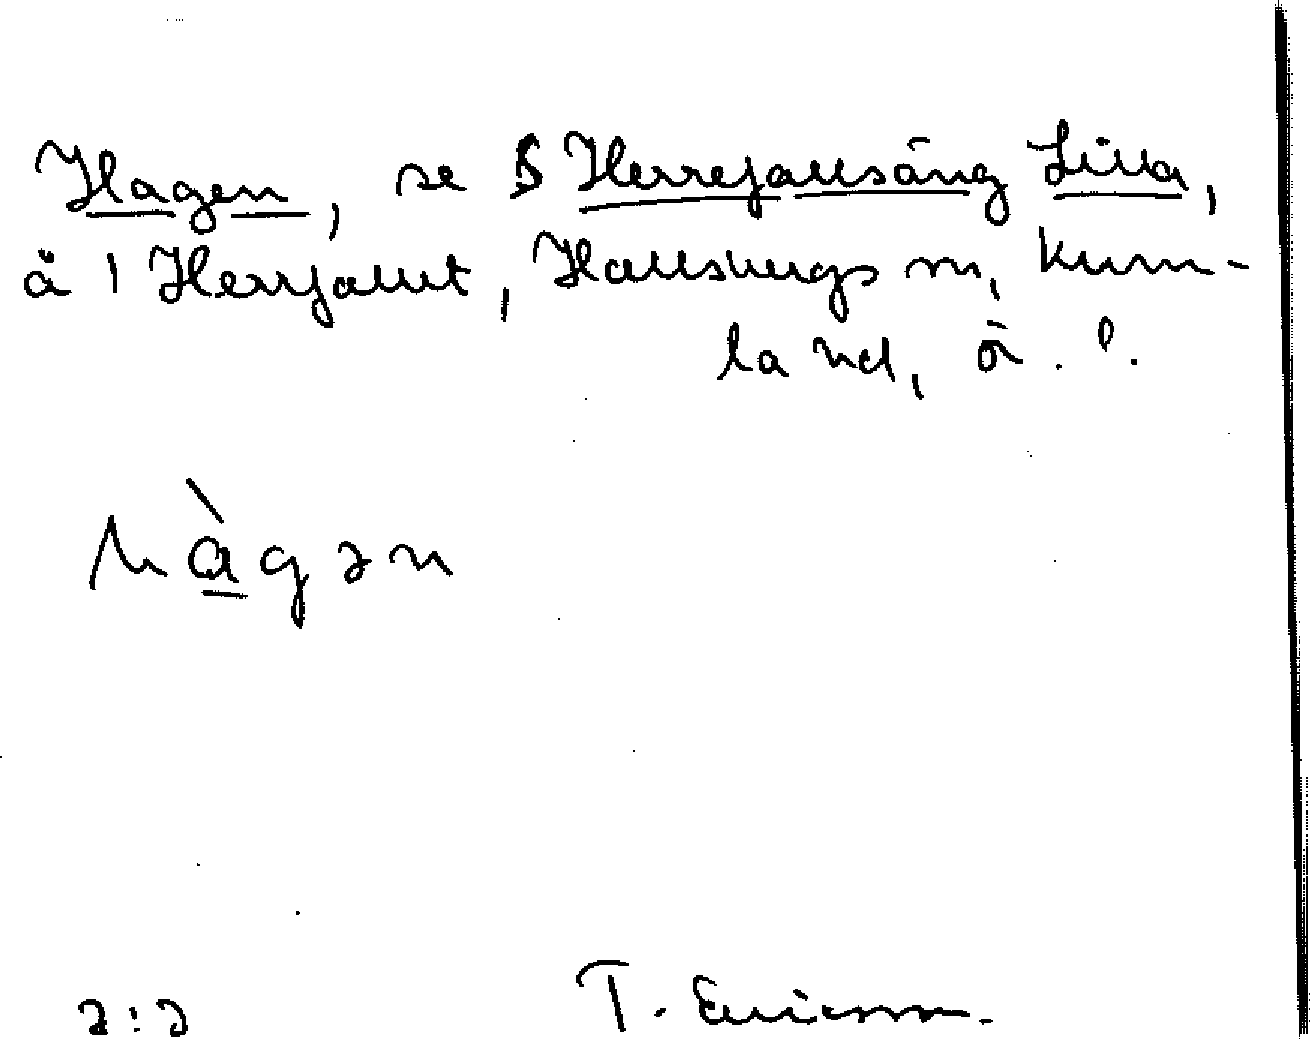 Hagen, se § Herrefallsäng Lilla,
ä 1 Herrfallet, Hallsbergs sn, Kum-
la hd, ö. l.
hàgən
T. Ericsson.